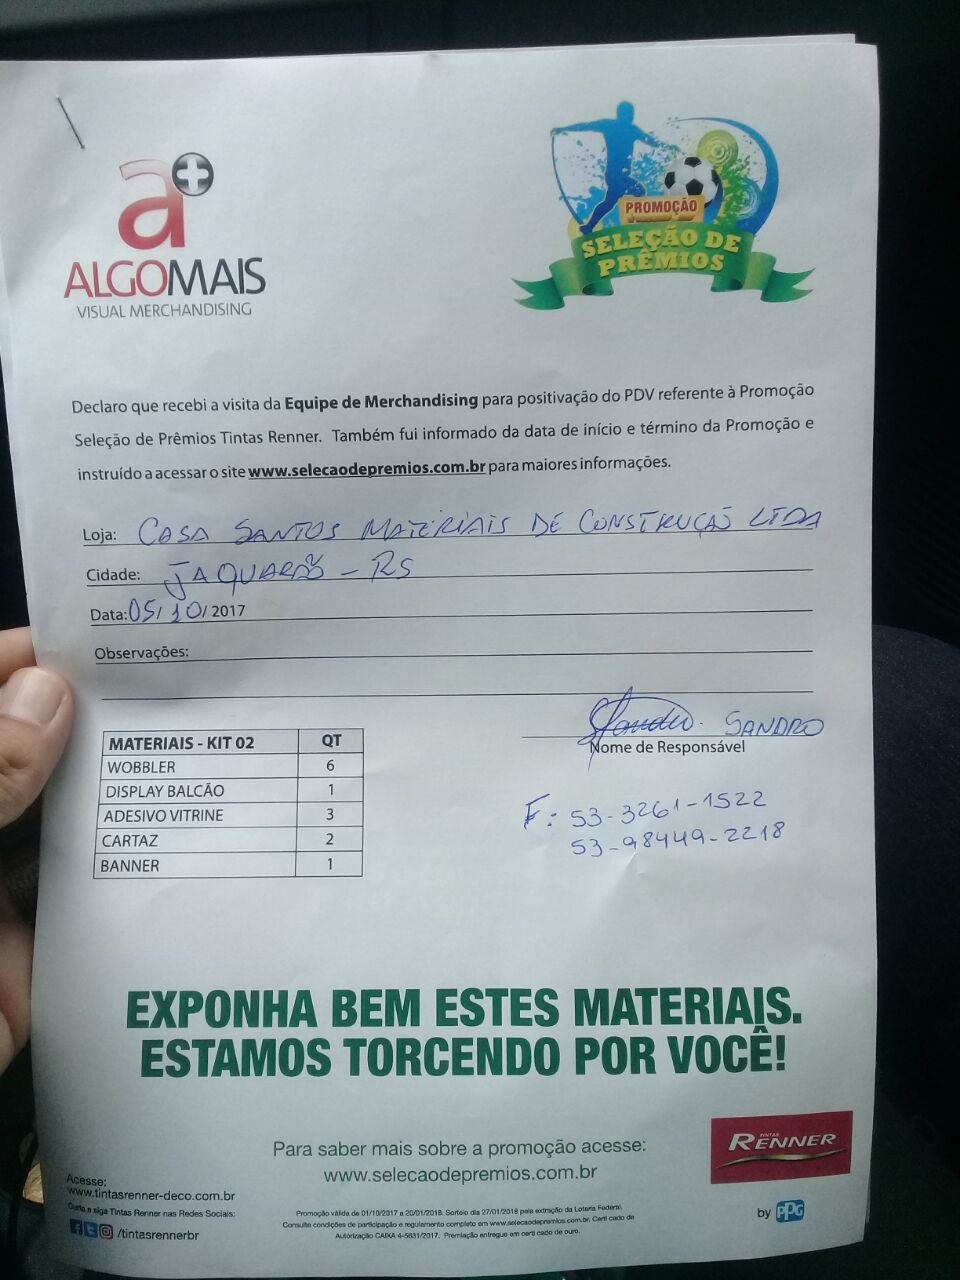 a+
ALGOMAIS
VISUAL MERCHANDISING
PROMOÇÃO
SELEÇÃO DE
PRÊMIOS
Declaro que recebi a visita da Equipe de Merchandising para positivação do PDV referente à Promoção
Seleção de Prêmios Tintas Renner. Também fui informado da data de início e término da Promoção e
instruído a acessar o site www.selecaodepremios.com.br para maiores informações.
Loja: CASA SANTOS MATERIAIS DE CONSTRUÇÃO LTDA
Cidade: JAGUARÃO - RS
Data: 05/10/2017
Observações:
SANDRO
Nome de Responsável
MATERIAIS - KIT 02 QT
WOBBLER 6
DISPLAY BALCÃO 1
ADESIVO VITRINE 3
CARTAZ 2
BANNER 1
F: 53-3261-1522
53-98449-2218
EXPONHA BEM ESTES MATERIAIS.
ESTAMOS TORCENDO POR VOCÊ!
Para saber mais sobre a promoção acesse:
www.selecaodepremios.com.br
TINTAS
RENNER
by PPG
Acesse:
www.tintasrenner-deco.com.br
Curta e siga Tintas Renner nas Redes Sociais:
/tintasrennerbr
Promoção válida de 01/10/2017 a 20/01/2018. Sorteio dia 27/01/2018 pela extração da Loteria Federal.
Consulte condições de participação e regulamento completo em www.selecaodepremios.com.br. Certi cado de
Autorização CAIXA 4-5631/2017. Premiação entregue em certi cado de ouro.